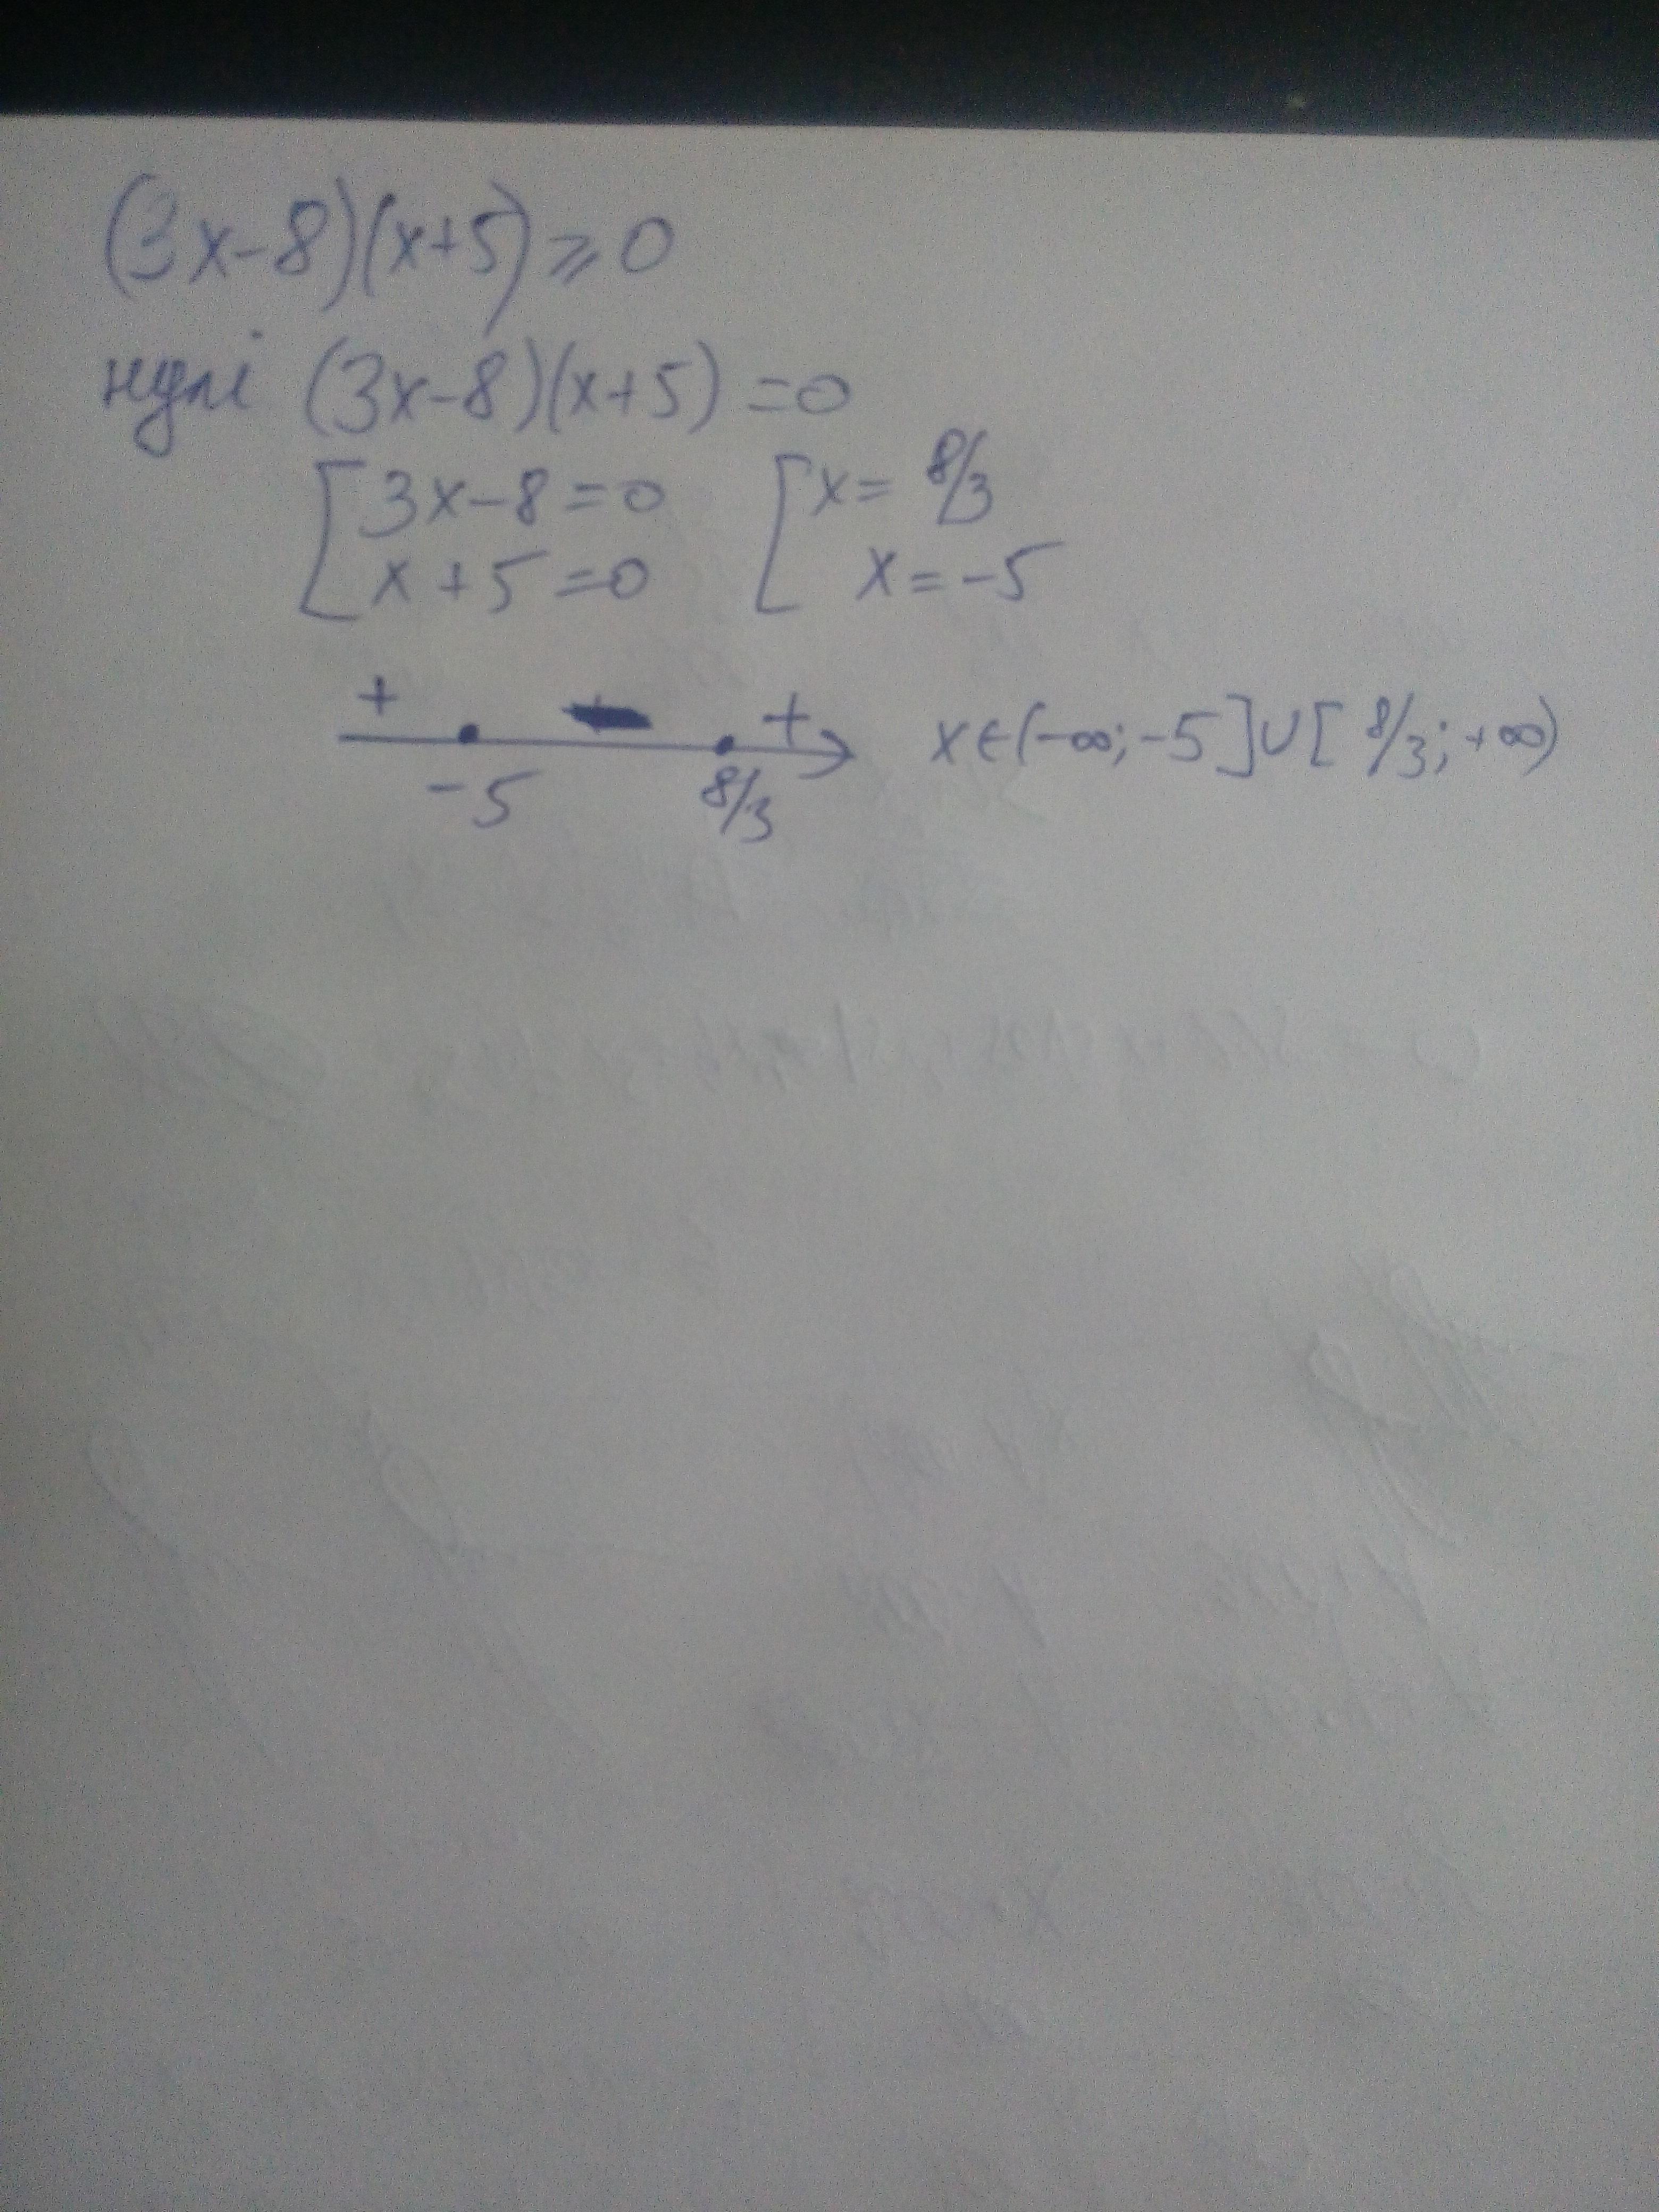 (3x-8)(x+5)⩾0
нулі (3x-8)(x+5)=0
[3x-8=0 [x= 8/3
x+5=0 x=-5
+ - + x∈(-∞;-5]∪[8/3;+∞)
-5 8/3